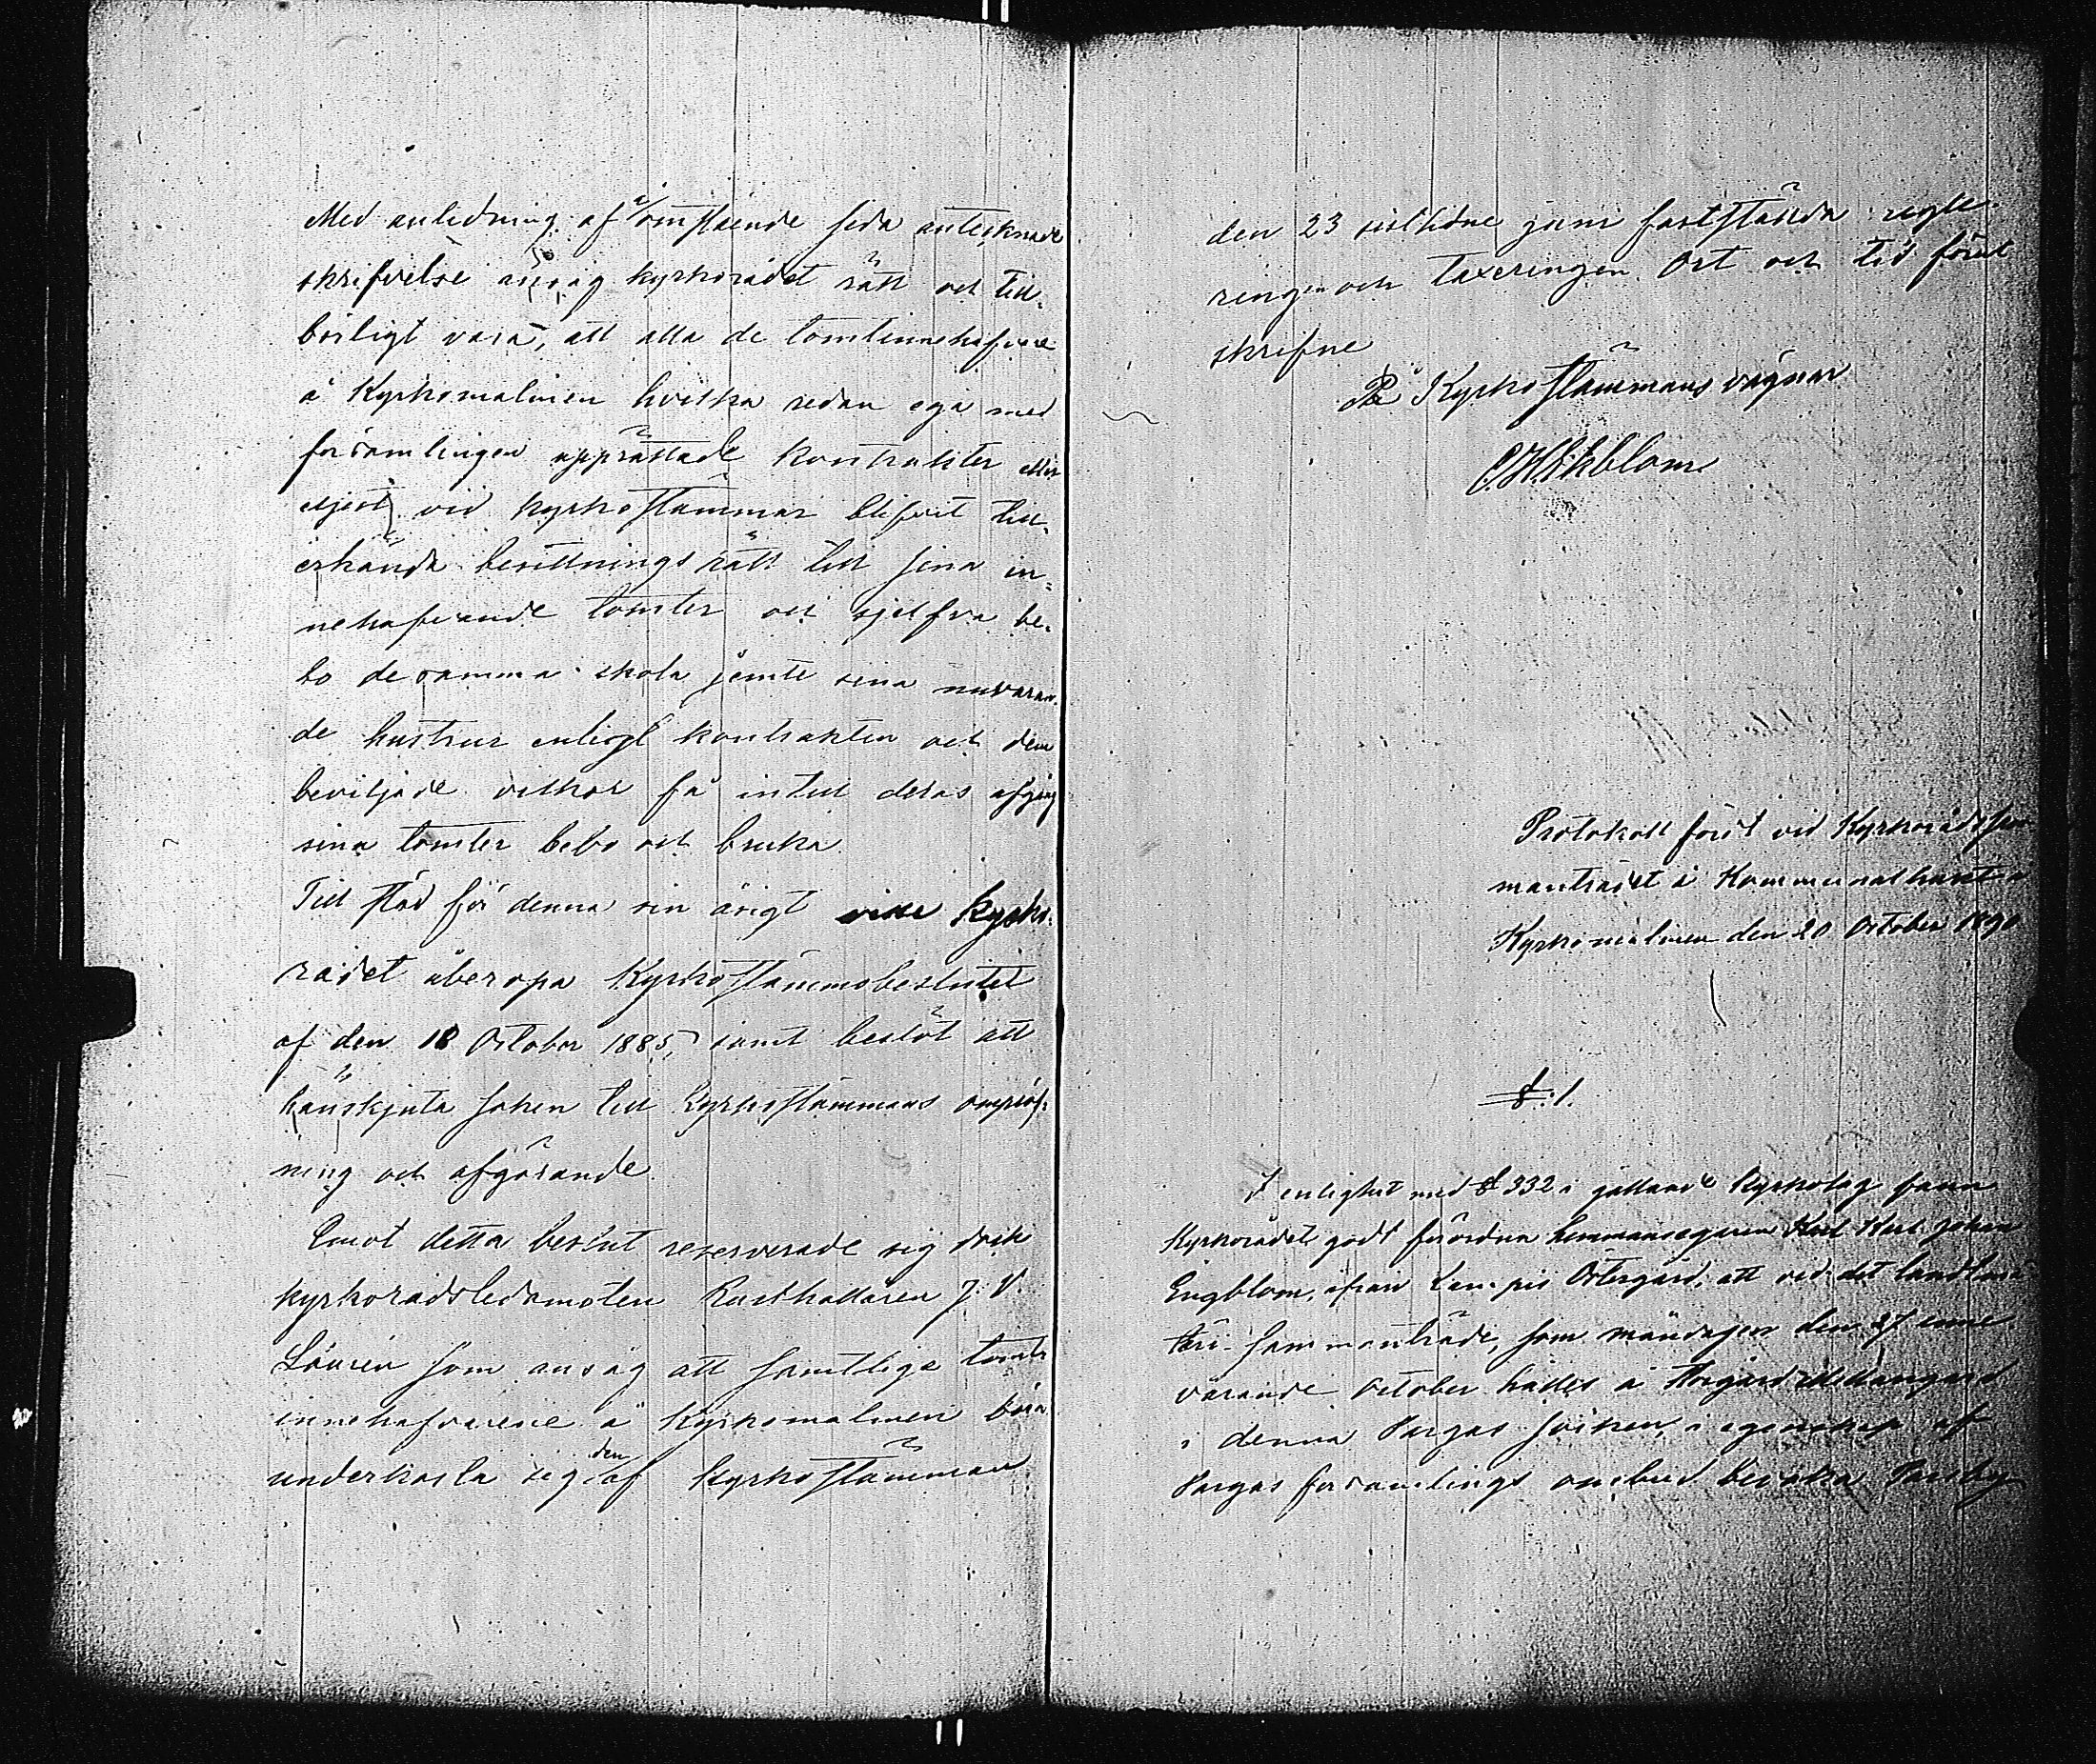 Med anledning af å omstående sida antecknade
skrifvelse ansåg kyrkorådet rätt och till-
börligt vara, att alla de tomtinnehafvare
å Kyrkomalmen hvilka redan ega med
församlingen upprättade kontrakter eller
eljest vid kyrkostämmor blifvit till-
erkända besittningsrätt till sina in-
nehafvande tomter och sjelfva be-
bo desamma skola jemte sina nuvaran-
de hustrur enligt kontrakten och dem
beviljade vilkor få intill deras afgång
sina tomter bebo och bruka.
Till stöd för denna sin åsigt ville kyrko-
rådet åberopa Kyrkostämmobeslutet
af den 18 October 1885, samt beslöt att
hänskjuta saken till Kyrkostämmans ompröf-
ning och afgörande.
Emot detta beslut reserverade sig dock
kyrkorådsledamoten Rusthållaren J. V.
Lönren som ansåg att samtlige tomt-
innehafvarene å Kyrkomalmen böra
underkasta sig den af kyrkostämman
den 23 sistlidne juni fastställda regle-
ringen och taxeringen. Ort och tid förut
skrifne
På Kyrkostämmans vägnar
C. H. Ekblom
Protokoll fördt vid Kyrkorådssam-
manträdet i Kommunalhuset å
Kyrkomalmen den 20 October 1890
§. 1.
I enlighet med § 332 i gällande Kyrkolag fann
Kyrkorådet godt förordna hemmansegaren Karl Johan
Engblom, ifrån Lempis Östergård, att vid det landtmä-
teri-sammanträde, som måndagen den 27 inne
varande October hålles å Norrgård Mellangård
i denna Pargas socken, i egenskap af
Pargas församlings ombud bevaka